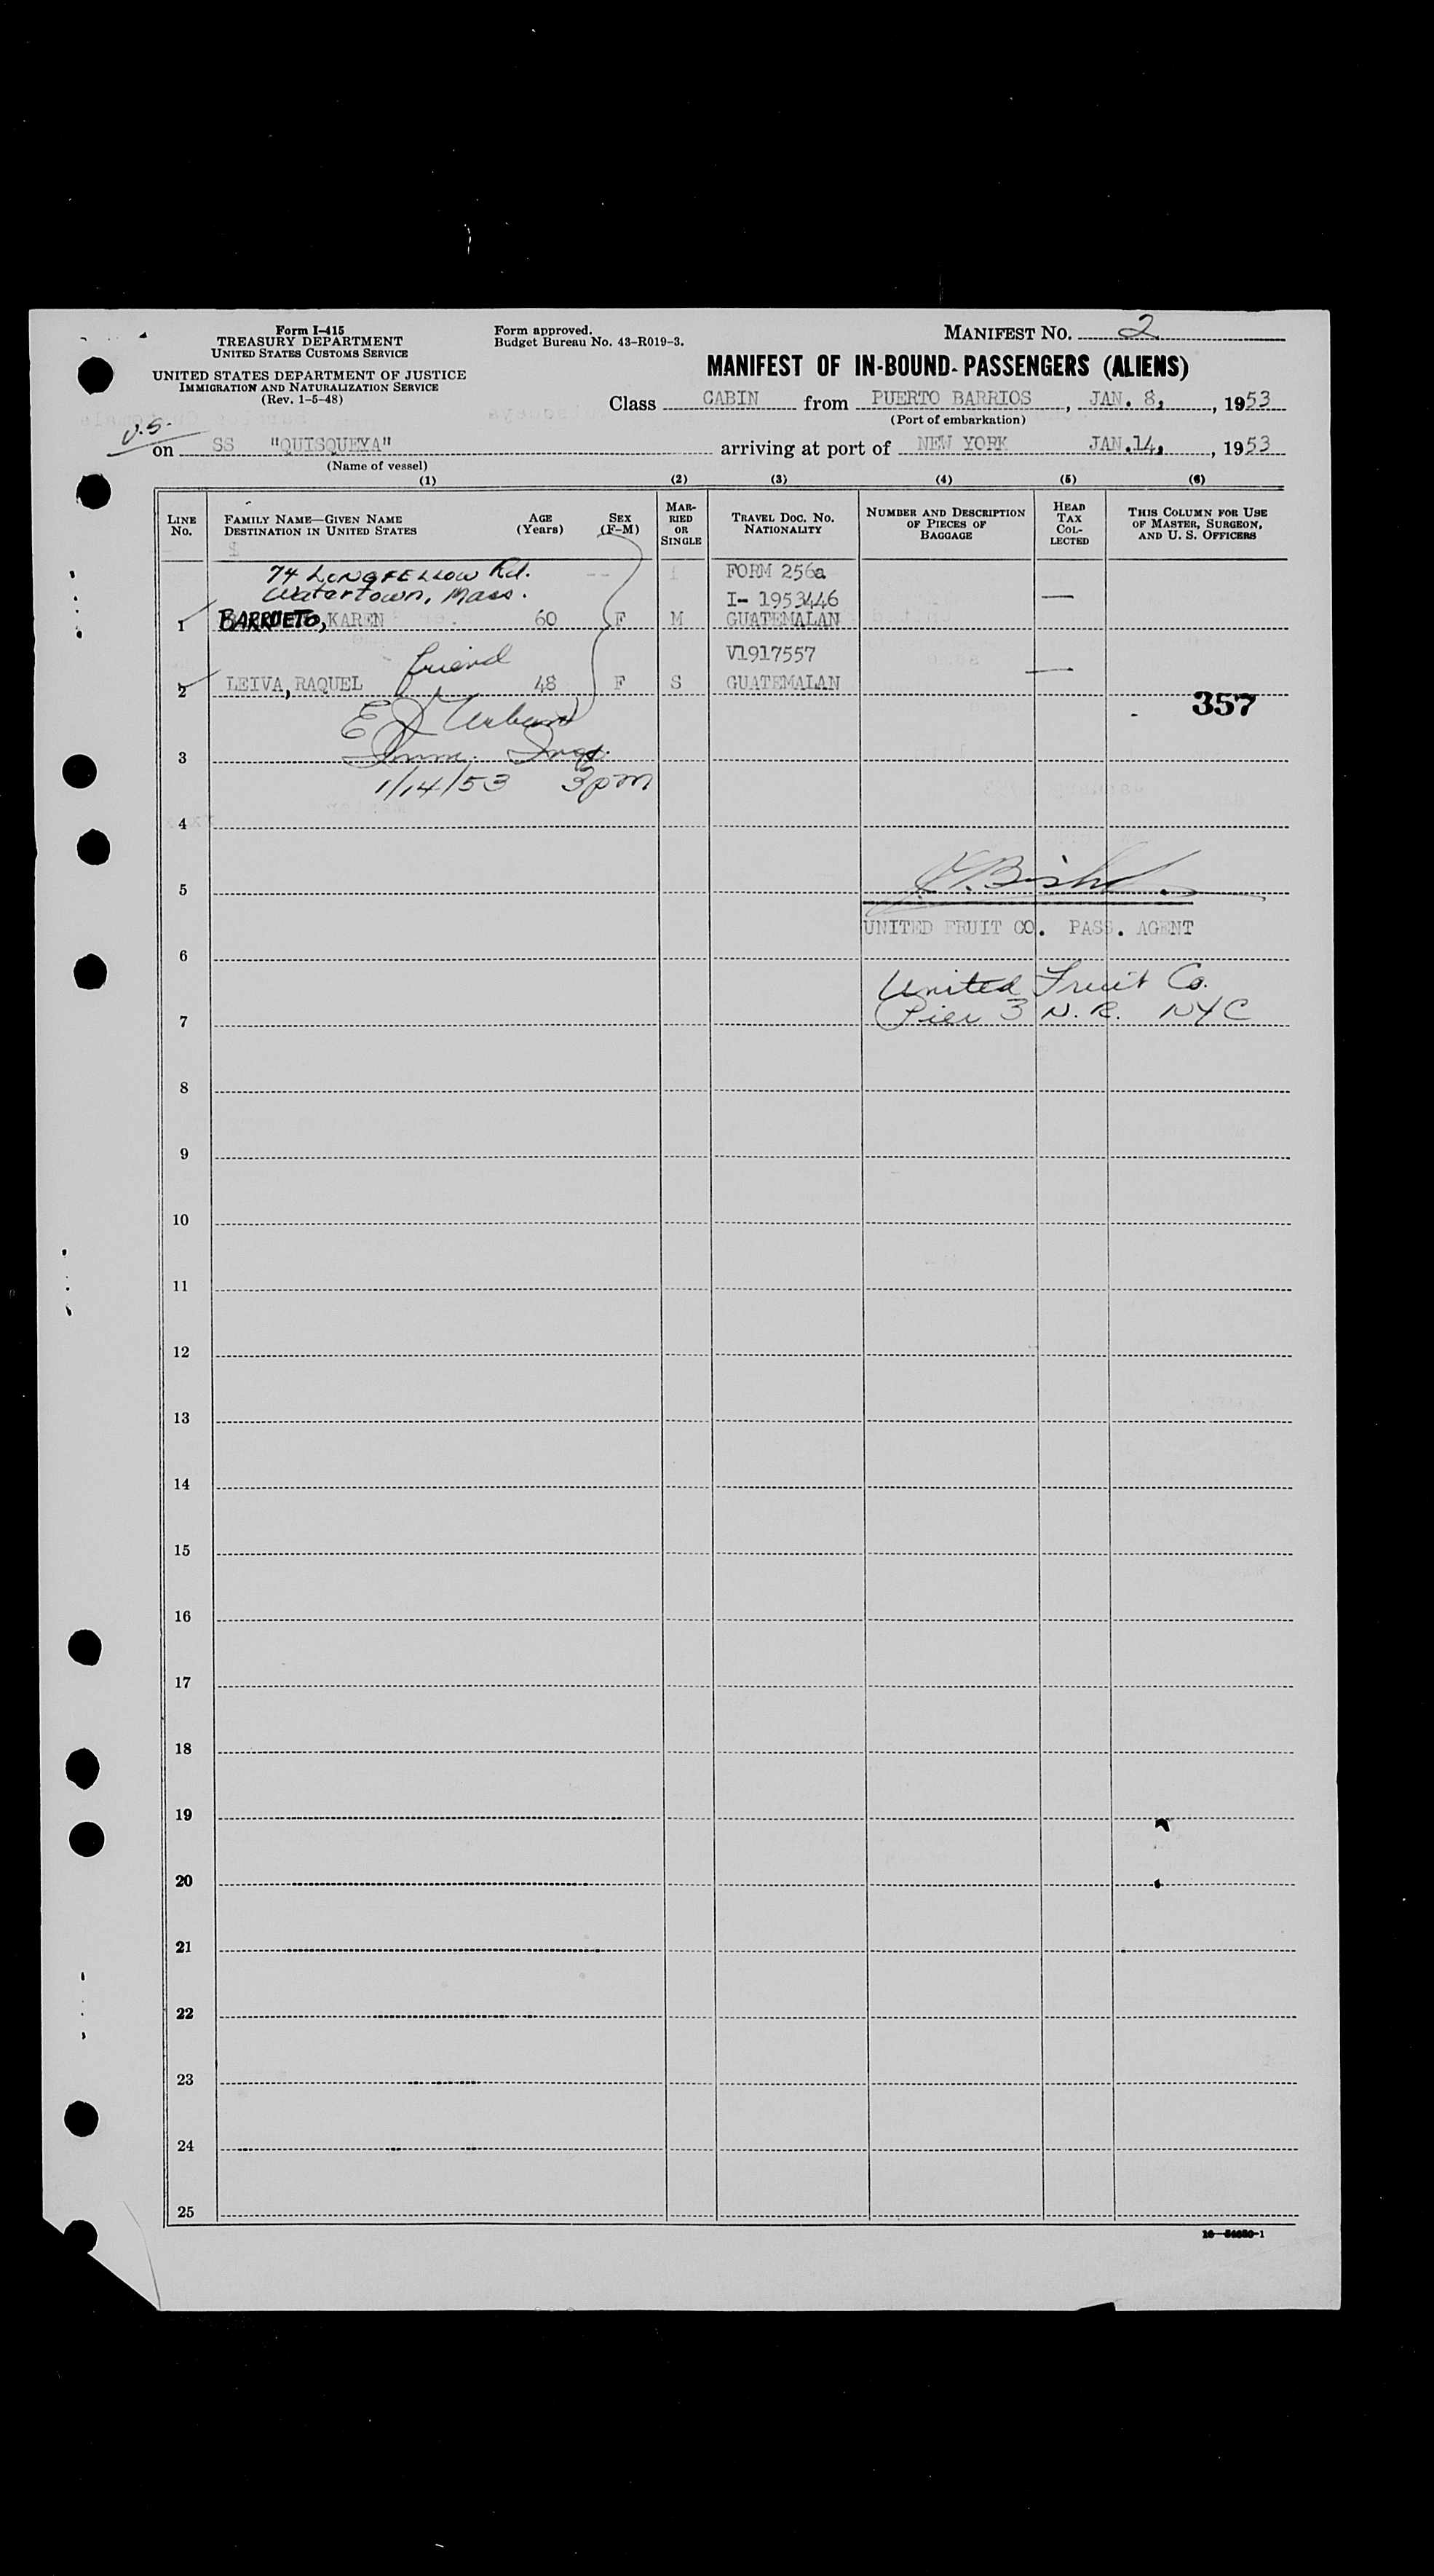 Form I-415
TREASURY DEPARTMENT
UNITED STATES CUSTOMS SERVICE
UNITED STATES DEPARTMENT OF JUSTICE
IMMIGRATION AND NATURALIZATION SERVICE
(Rev. 1-5-48)
Form approved.
Budget Bureau No. 43-R019-3.
MANIFEST No. 2
MANIFEST OF IN-BOUND PASSENGERS (ALIENS)
Class CABIN from PUERTO BARRIOS, JAN. 8, , 1953
(Port of embarkation)
U.S.
on SS "QUISQUEYA" arriving at port of NEW YORK JAN.14, , 1953
(Name of vessel)
(1) (2) (3) (4) (5) (6)
LINE No.
FAMILY NAME—GIVEN NAME
DESTINATION IN UNITED STATES
AGE (Years)
SEX (F-M)
MARRIED OR SINGLE
TRAVEL DOC. No. NATIONALITY
NUMBER AND DESCRIPTION OF PIECES OF BAGGAGE
HEAD TAX COLLECTED
THIS COLUMN FOR USE OF MASTER, SURGEON, AND U. S. OFFICERS
74 LONGFELLOW Rd. FORM 256a
Watertown, Mass. I- 1953446 —
1 BARRUETO, KAREN 60 F M GUATEMALAN
friend V1917557 —
2 LEIVA, RAQUEL 48 F S GUATEMALAN
357
E J
3 Imm. Insp.
1/14/53 3pm
4
5
UNITED FRUIT CO. PASS. AGENT
6
United Fruit Co.
7 Pier 3 N. R. NYC
8
9
10
11
12
13
14
15
16
17
18
19
20
21
22
23
24
25